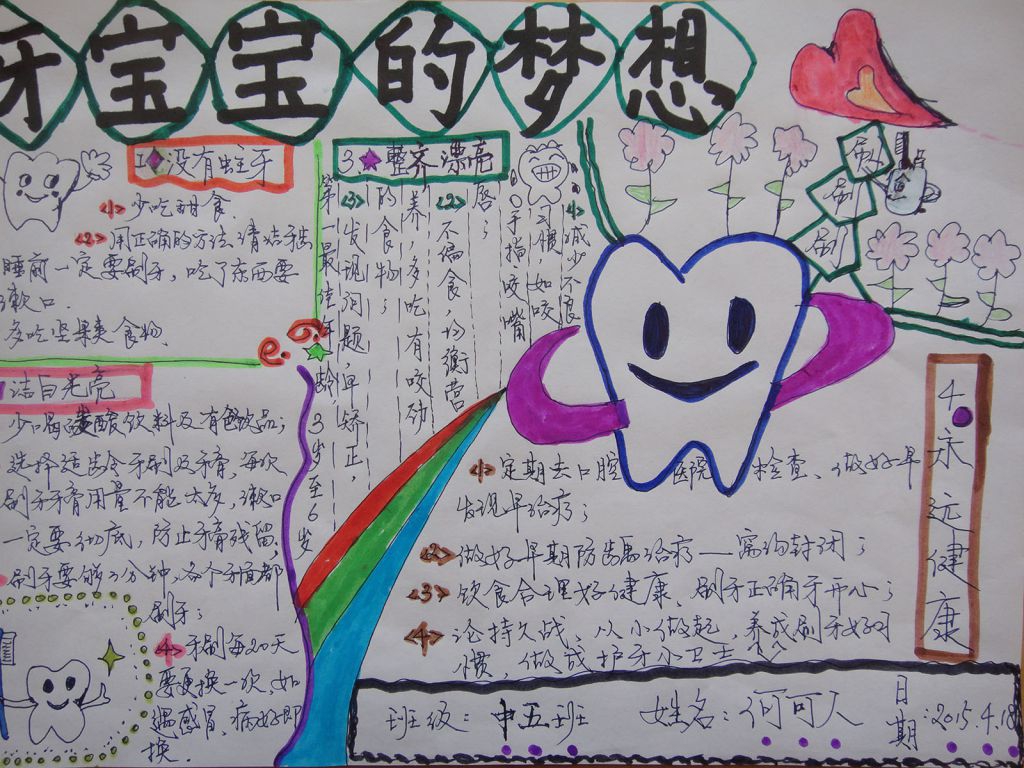 牙宝宝的梦想
1.没有蛀牙
<1>少吃甜食.
<2>用正确的方法清洁牙齿
睡前一定要刷牙,吃了东西要
漱口.
多吃坚果类食物.
洁白光亮
少喝碳酸饮料及有色饮品;
选择适龄牙刷及牙膏,每次
刷牙牙膏用量不能太多,漱口
一定要彻底,防止牙膏残留;
刷牙要够3分钟,各个牙面都
刷牙;
<4>牙刷每20天
要更换一次,如
遇感冒,病好即
换.
3.整齐漂亮
第一最佳年龄3岁至6岁
<3>发现问题,早矫正,
养,多吃有咬劲
的食物;
<2>不偏食,均衡营
唇;
手指咬嘴
习惯,如咬
<4>减少不良
刷
刷
刷
4永远健康
<1>定期去口腔医院检查、做好早
发现早治疗;
<2>做好早期防龋治疗——窝沟封闭;
<3>饮食合理好健康、刷牙正确牙开心;
<4>论持久战、从小做起,养成刷牙好习
惯,做成护牙小卫士
班级:中五班
姓名:何可人
日期:2015.4.18